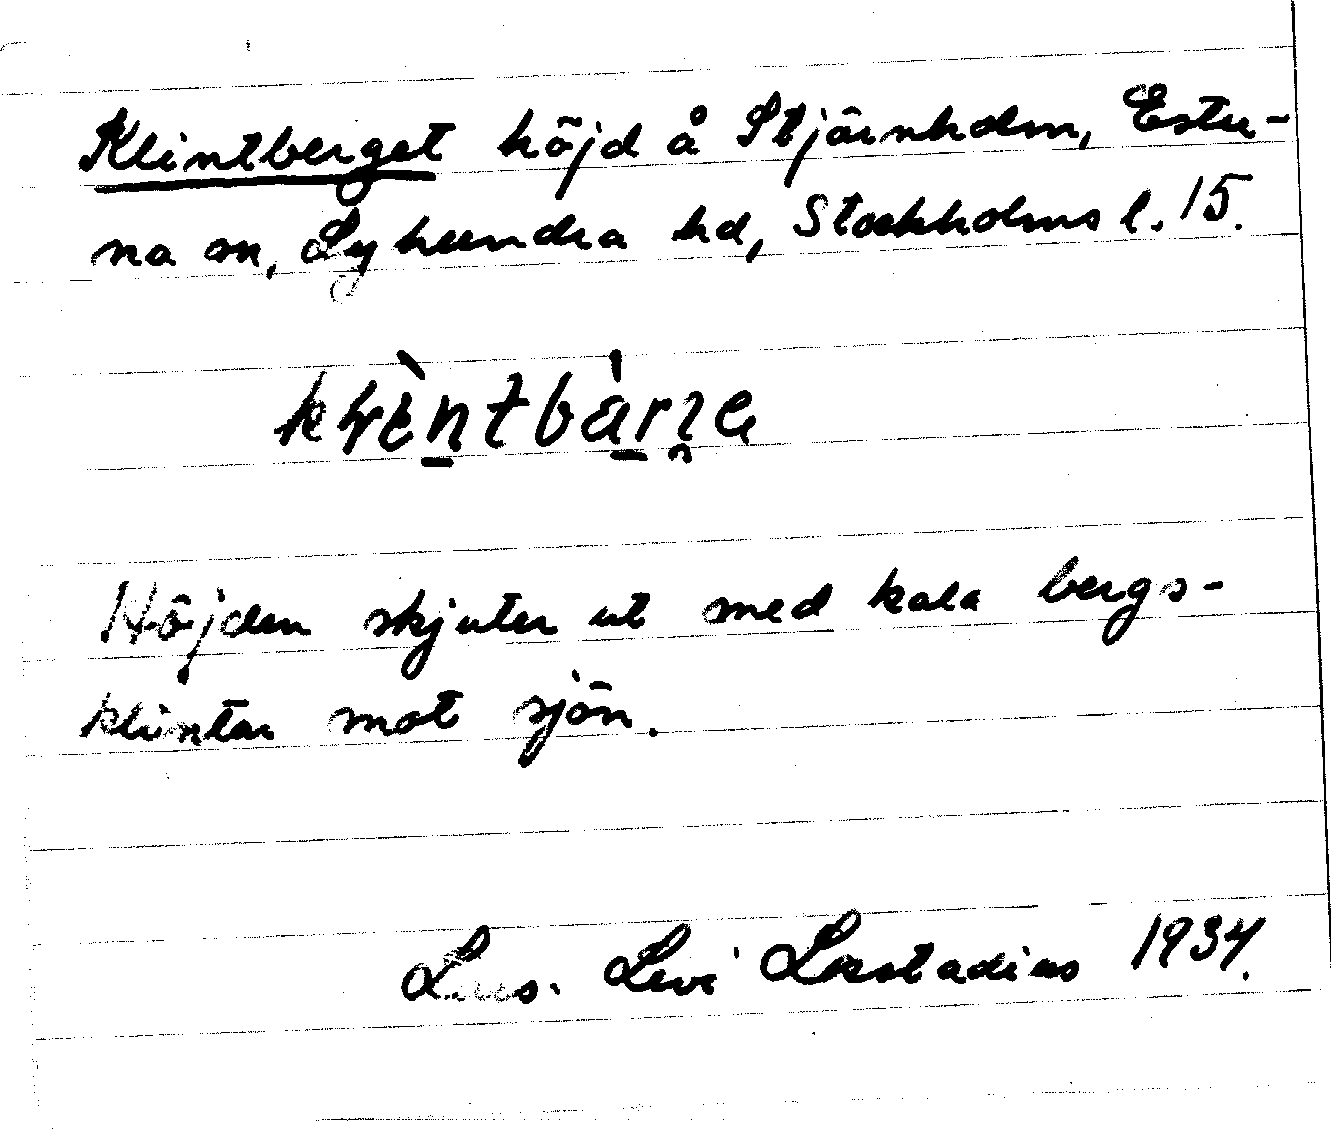 Klintberget höjd å Stjärnholm, Estu-
na sn, Lyhundra hd, Stockholms l. 15.
Höjden skjuter ut med kala bergs-
klintar mot sjön.
Lars. Levi Læstadius 1934.